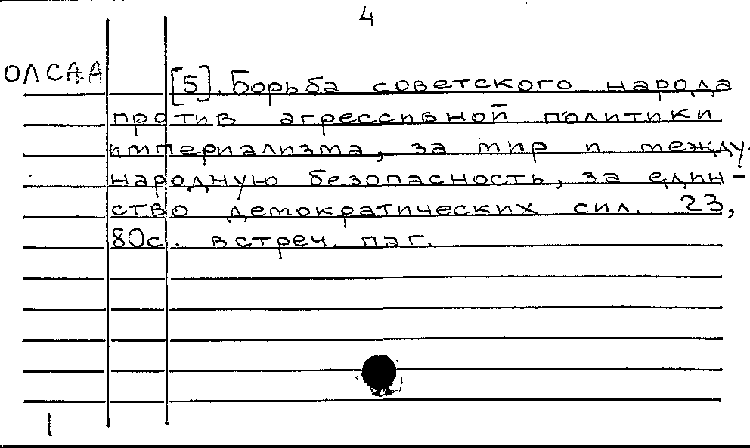 4
ОЛСАА
[5]. Борьба советского народа
против агрессивной политики
империализма, за мир и между-
народную безопасность, за един-
ство демократических сил. 23,
80с. встреч. паг.